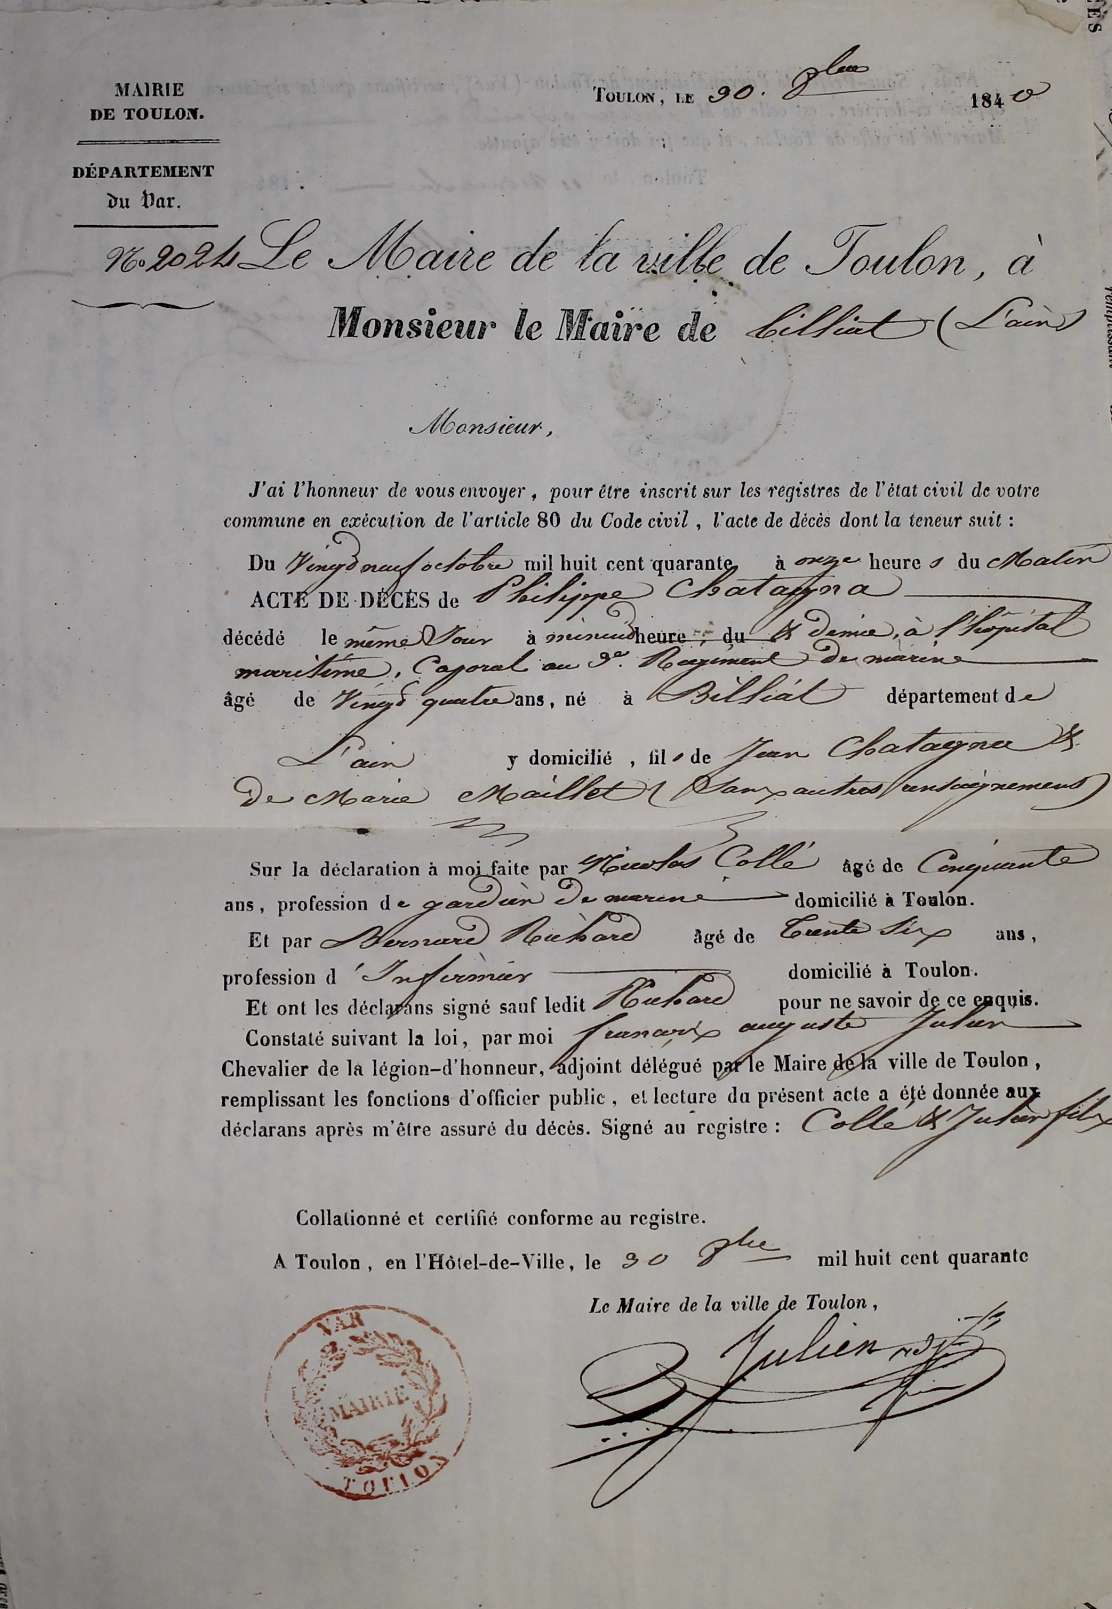 MAIRIE
DE TOULON.
DÉPARTEMENT
du Var.
TOULON, LE 30. 9bre 1840
No. 2024
Le Maire de la ville de Toulon, à
Monsieur le Maire de Billiat (L'ain)
Monsieur,
J'ai l'honneur de vous envoyer, pour être inscrit sur les registres de l'état civil de votre
commune en exécution de l'article 80 du Code civil, l'acte de décès dont la teneur suit :
Du Vingt neuf octobre mil huit cent quarante à onze heures du Matin
ACTE DE DÉCÈS de Philippe Chatagna
décédé le même Jour à minuit heure du & demie, à l'hôpital
maritime, Caporal au 3e. Régiment de marine
âgé de Vingt quatre ans, né à Billiat département de
L'ain y domicilié, fils de Jean Chatagna &
de Marie Maillet (Sans autres renseignemens)
Sur la déclaration à moi faite par Nicolas Collé âgé de Cinquante
ans, profession de gardien de marine domicilié à Toulon.
Et par Bernard Richard âgé de Trente Six ans,
profession d'Infirmier domicilié à Toulon.
Et ont les déclarans signé sauf ledit Richard pour ne savoir de ce enquis.
Constaté suivant la loi, par moi françois auguste Julien
Chevalier de la légion-d'honneur, adjoint délégué par le Maire de la ville de Toulon,
remplissant les fonctions d'officier public, et lecture du présent acte a été donnée aux
déclarans après m'être assuré du décès. Signé au registre : Collé & Julien fils
Collationné et certifié conforme au registre.
A Toulon, en l'Hôtel-de-Ville, le 30 9bre mil huit cent quarante
Le Maire de la ville de Toulon,
Julien
VAR
MAIRIE
TOULON